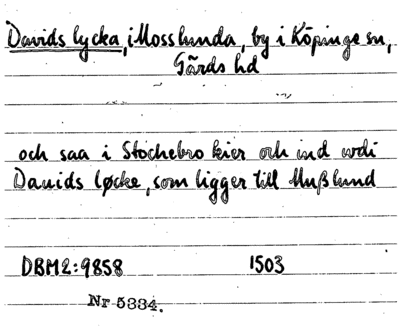 Davids lycka, i Mosslunda, by i Köpinge sn,
Gärds hd
och saa i Stochebro kier och ind wdi
Dauids løcke, som ligger till Mußlund
DBM2:9858 1503
Nr 5334.